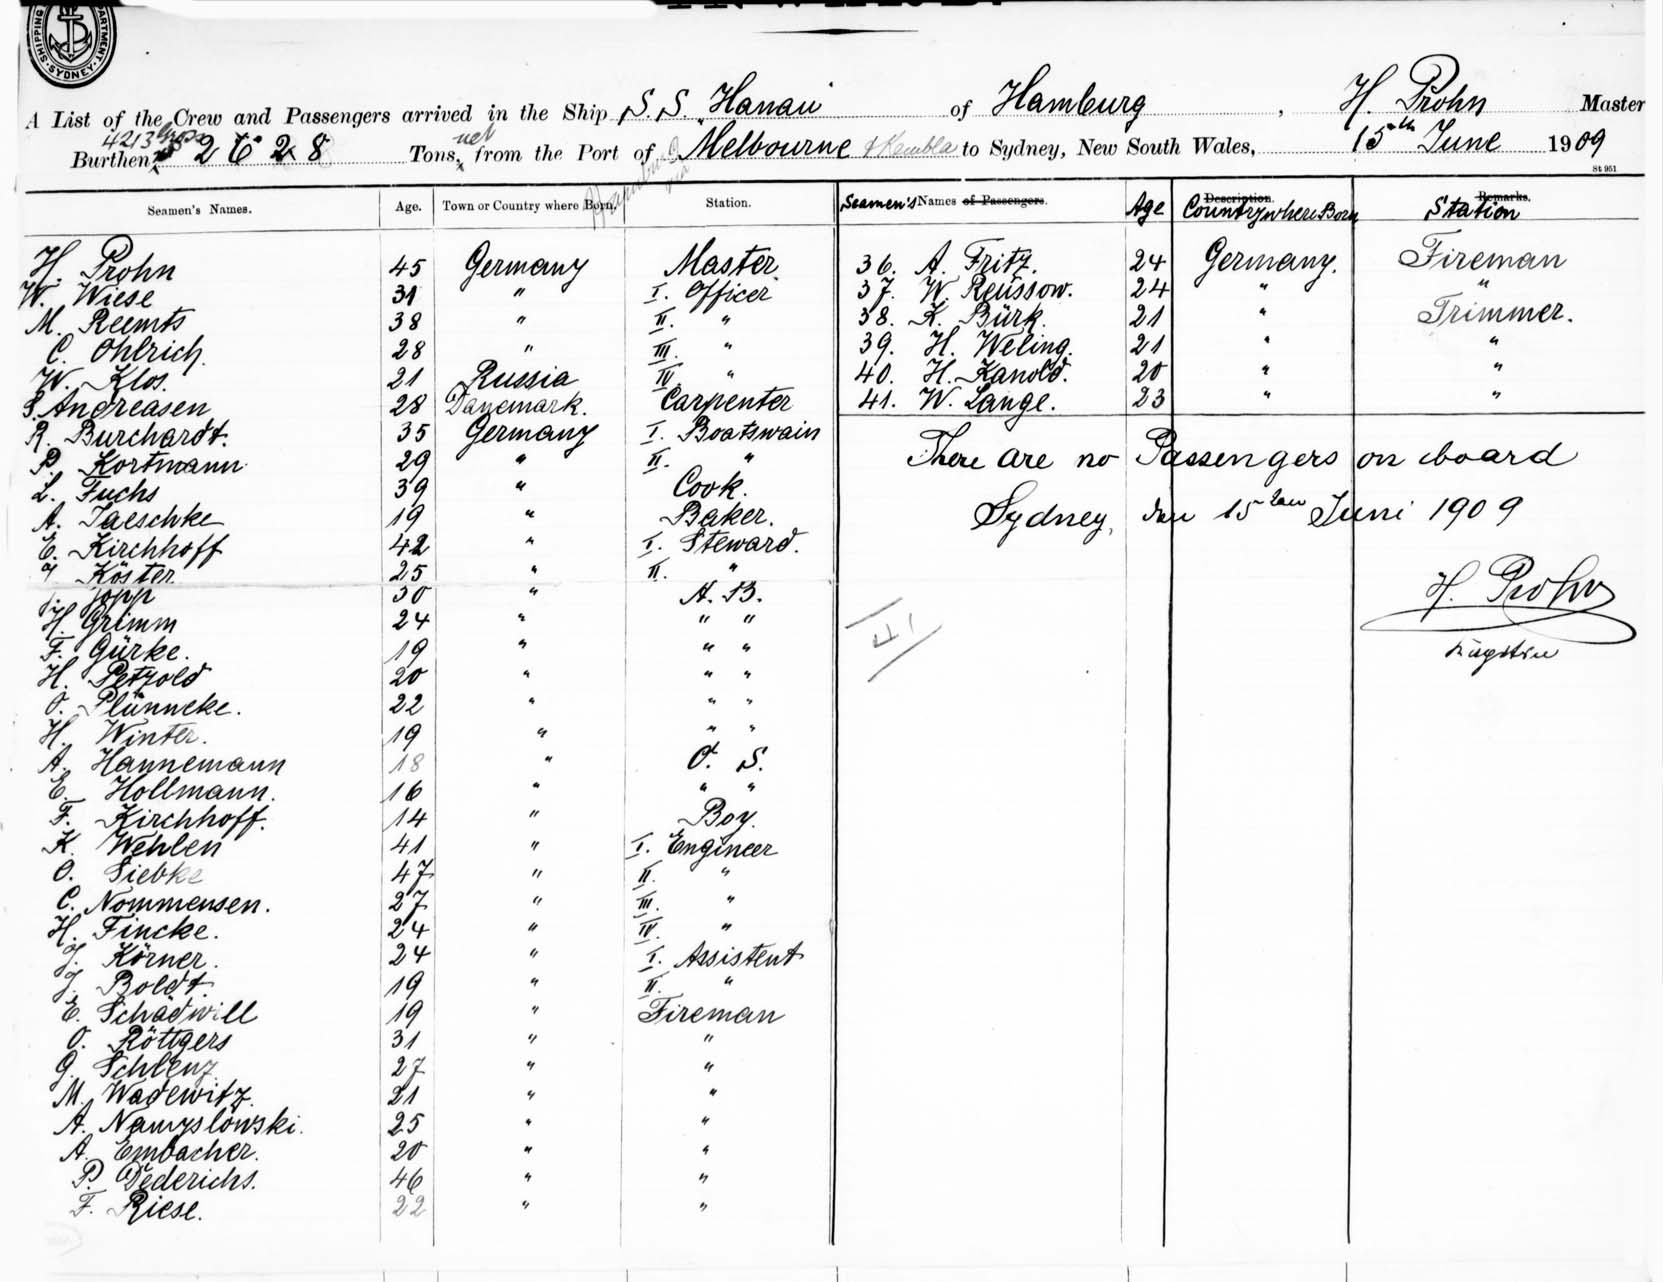 SHIPPING DEPARTMENT. SYDNEY.
A List of the Crew and Passengers arrived in the Ship S. S. Hanau of Hamburg, H. Prohn Master
4213 Gross
Burthen, 2628 Tons, net from the Port of Melbourne & Kembla to Sydney, New South Wales, 15th June 1909
St 951
Seamen's Names. Age. Town or Country where Born. Station.
H. Prohn 45 Germany Master
W. Wiese 31 " I. Officer
M. Reemts 38 " II. "
C. Ohlrich. 28 " III. "
W. Klos. 21 Russia IV. "
S. Andreasen 28 Danemark. Carpenter
R. Burchardt. 35 Germany I. Boatswain
P. Kortmann 29 " II. "
L. Fuchs 39 " Cook.
A. Jaeschke 19 " Baker.
E. Kirchhoff 42 " I. Steward.
Köster 25 " II. "
Jopp 30 " A. B.
H. Grimm 24 " " "
F. Gürke. 19 " " "
H. Petzold 20 " " "
O. Plünneke. 22 " " "
H. Winter. 19 " " "
A. Hannemann 18 " O. S.
E. Hollmann. 16 " " "
F. Kirchhoff. 14 " Boy.
K. Wehlen 41 " I. Engineer
O. Siebke 47 " II. "
C. Nommensen. 27 " III. "
H. Fincke. 24 " IV. "
J. Körner. 24 " I. Assistent
J. Boldt. 19 " II. "
E. Schadwill 19 " Fireman
O. Röttgers 31 " "
G. Schlenz 27 " "
M. Wadewitz. 21 " "
A. Namyslowski. 25 " "
A. Embacher. 20 " "
P. Dederichs. 46 " "
F. Riese. 22 " "
Seamen's Names of Passengers. Age Description. Country where Born Remarks. Station
36. A. Fritz. 24 Germany. Fireman
37. W. Reüssow. 24 " "
38. K. Bürk. 21 " Trimmer.
39. H. Weling. 21 " "
40. H. Kanold. 20 " "
41. W. Lange. 23 " "
There are no Passengers on board
Sydney, den 15ten Juni 1909
H. Prohn
41